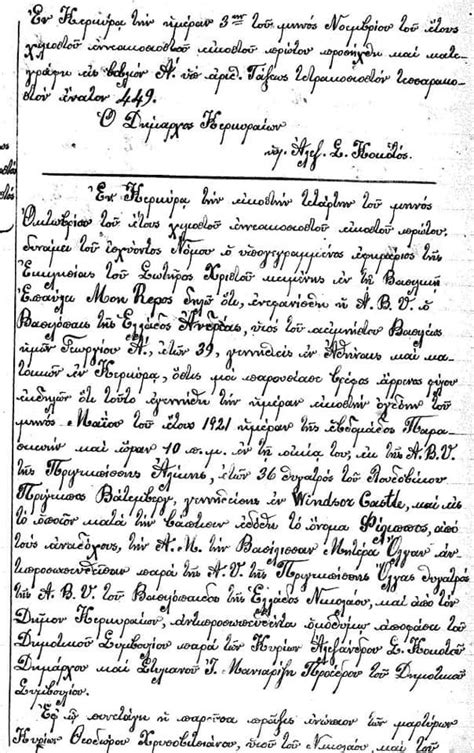 Ἐν Κερκύρᾳ τὴν ἡμέραν 3ην τοῦ μηνὸς Νοεμβρίου τοῦ ἔτους
χιλιοστοῦ ἐννεακοσιοστοῦ εἰκοστοῦ πρώτου προσήχθη καὶ κατε-
γράφη εἰς βαθμὸν Α΄. ὑπ' ἀριθ. Τάξεως τετρακοσιοστὸν τεσσαρακο-
στὸν ἔνατον 449.
Ὁ Δήμαρχος Κερκυραίων
ὑπ. Ἀλεξ. Σ. Κοκοτός.
Ἐν Κερκύρᾳ τὴν εἰκοστὴν τετάρτην τοῦ μηνὸς
Ὀκτωβρίου τοῦ ἔτους χιλιοστοῦ ἐννεακοσιοστοῦ εἰκοστοῦ πρώτου,
δυνάμει τοῦ ἰσχύοντος Νόμου ὁ ὑπογεγραμμένος ἐφημέριος τῆς
Ἐκκλησίας τοῦ Σωτῆρος Χριστοῦ κειμένης ἐν τῇ Βασιλικῇ
Ἐπαύλει Mon Repos δηλῶ ὅτι, ἐνεφανίσθη ἡ Α. Β. Υ. ὁ
Βασιλόπαις τῆς Ἑλλάδος Ἀνδρέας, υἱὸς τοῦ ἀειμνήστου Βασιλέως
ἡμῶν Γεωργίου Α΄., ἐτῶν 39, γεννηθεὶς ἐν Ἀθήναις καὶ κα-
τοικῶν ἐν Κερκύρᾳ, ὅστις μοὶ παρουσίασε βρέφος ἄρρενος φύλου
εἰπὼν ὅτι τοῦτο ἐγεννήθη τὴν ἡμέραν εἰκοστὴν ὀγδόην τοῦ
μηνὸς Μαΐου τοῦ ἔτους 1921 ἡμέραν τῆς ἑβδομάδος Παρα-
σκευὴν καὶ ὥραν 10 π.μ. ἐν τῇ οἰκίᾳ του, ἐκ τῆς Α.Β.Υ.
τῆς Πριγκιπίσσης Ἀλίκης, ἐτῶν 36 θυγατρὸς τοῦ Λουδοβίκου
Πρίγκιπος Βάτεμβεργ, γεννηθείσης ἐν Windsor Castle, καὶ εἰς
τὸ ὁποῖον κατὰ τὴν βάπτισιν ἐδόθη τὸ ὄνομα Φίλιππος, ἀπὸ
τοὺς ἀναδόχους, τὴν Α.Μ. τὴν Βασίλισσαν Μητέρα Ὄλγαν ἀν-
τιπροσωπευθεῖσαν παρὰ τῆς Α.Υ. τῆς Πριγκιπίσσης Ὄλγας θυγατρὸς
τῆς Α.Β.Υ. τοῦ Βασιλόπαιδος τῆς Ἑλλάδος Νικολάου, καὶ ἀπὸ τὸν
Δῆμον Κερκυραίων, ἀντιπροσωπευθέντα ὁμοθύμῳ ἀποφάσει τοῦ
Δημοτικοῦ Συμβουλίου παρὰ τῶν Κυρίων Ἀλεξάνδρου Σ. Κοκοτοῦ
Δημάρχου καὶ Στυλιανοῦ Ἰ. Μανιαρίζη Προέδρου τοῦ Δημοτικοῦ
Συμβουλίου.
Ἐφ' ᾧ συνετάγη ἡ παροῦσα πρᾶξις ἐνώπιον τῶν μαρτύρων
Κυρίων Θεοδώρου υἱοῦ τοῦ Νικολάου καὶ τοῦ